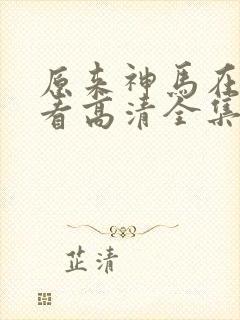 原来神马在
看高清全集
芷清